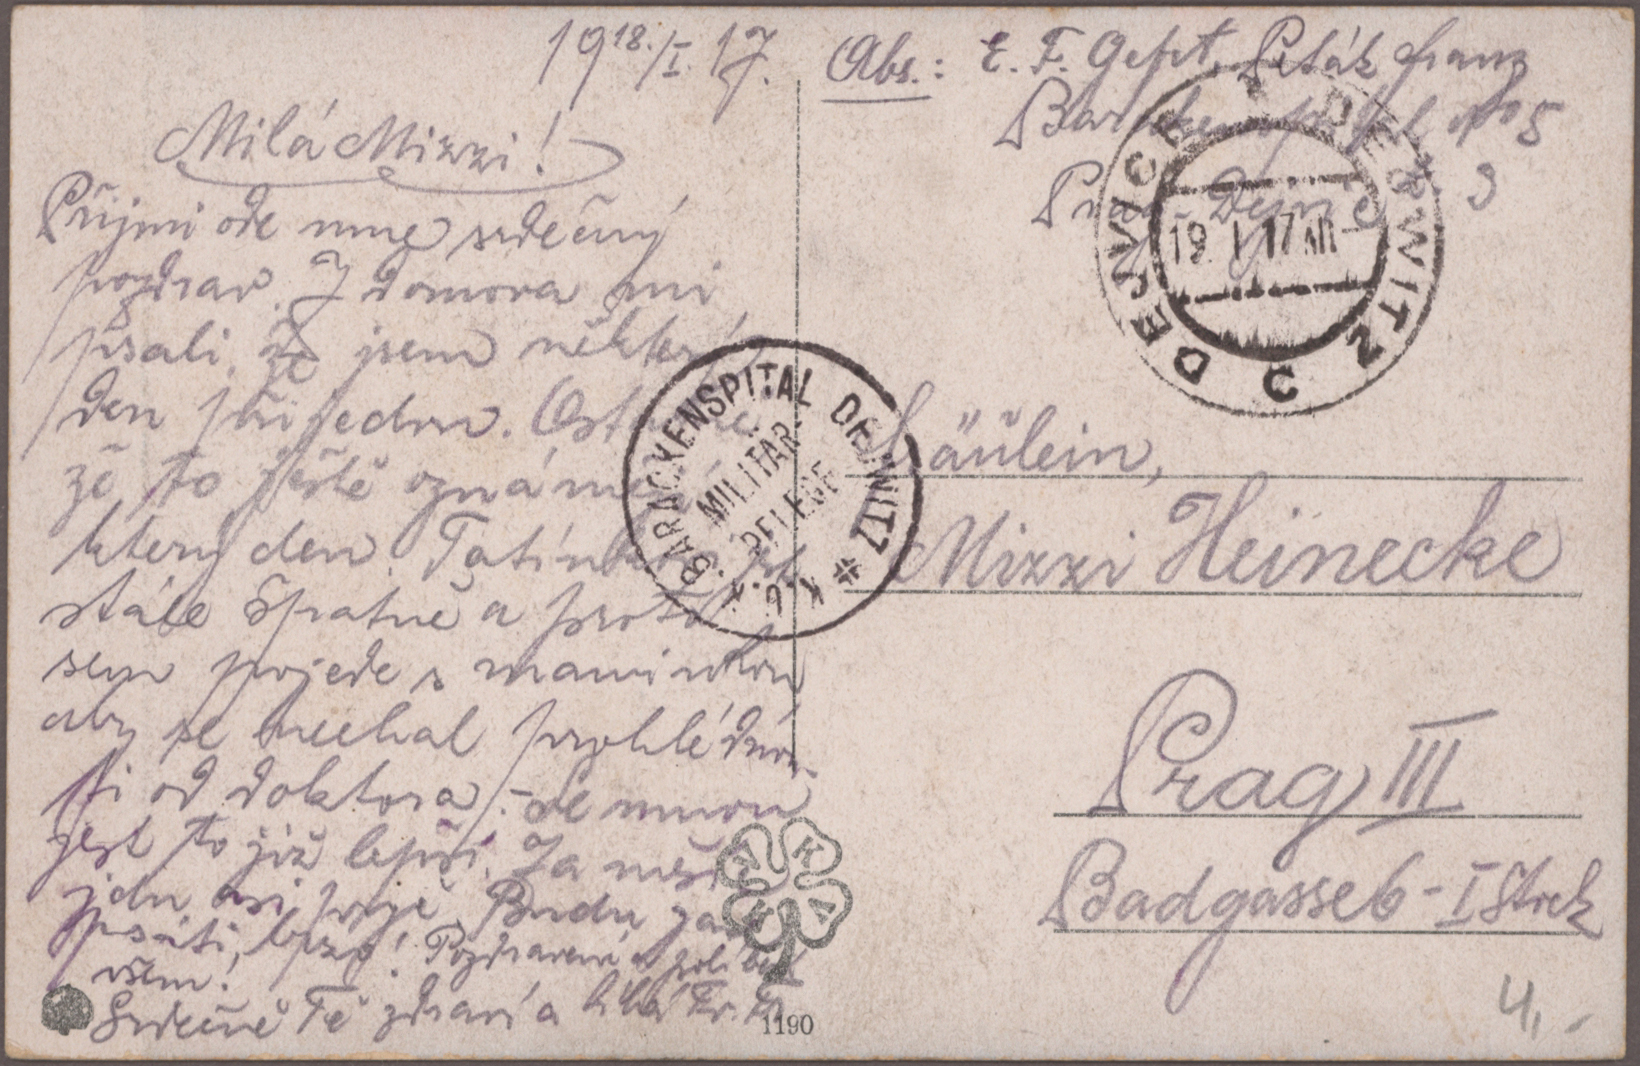 1918./I. 17.
Milá Mizzi!
Přijmi ode mne srdečný
pozdrav. Z domova mi
psali, že jsem některý
den přijedou.
že to ještě oznámejí
který den. Tatínkovi je
stále špatně a proto
sem pojede s maminkou
aby se nechal prohlédnou-
ti od doktora. - Se mnou
jest to již lepší. Za
jdu asi pryč. Budu zase
psáti, brzo! Pozdravení a políbení
všem!
Srdečně Tě zdraví a líbá Fr.
1190
Abs.: E. F. Gefrt. Pták Franz
Barackenspital No 5
Prag - Dejvic 3
DEJVICE DEJWITZ 2
19. I. 17 VII
K.u.K. BARACKENSPITAL DEJWITZ
MILITÄR-
PFLEGE
Fräulein,
Mizzi Heinecke
Prag III
Badgasse 6 - I Stock
4,-